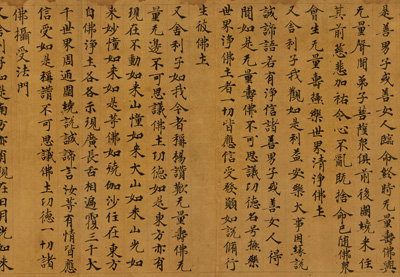 是善男子或善女人臨命終時無量壽佛與其
无量聲聞弟子菩薩衆俱前後圍繞来住
其前慈悲加祐令心不亂既捨命已随佛衆
會生无量壽極樂世界清淨佛土
又舎利子我觀如是利益安樂大事因緣說
誠諦語若有淨信諸善男子或善女人得
聞如是无量壽佛不可思議功德名号極樂
世界淨佛土者一切皆應信受發願如說脩行
生彼佛土
又舎利子如我今者稱揚讚歎无量壽佛无
量无邊不可思議佛土功德如是東方亦有
現在不動如来山幢如来大山如来山光如
来妙幢如来如是等佛如殑伽沙住在東方
自佛淨土各各示現廣長舌相遍覆三千大
千世界周迊圍繞說誠諦言汝等有情皆應
信受如是稱讚不可思議佛土功德一切諸
佛攝受法門
又舎利子如是南方亦有現在日月光如来